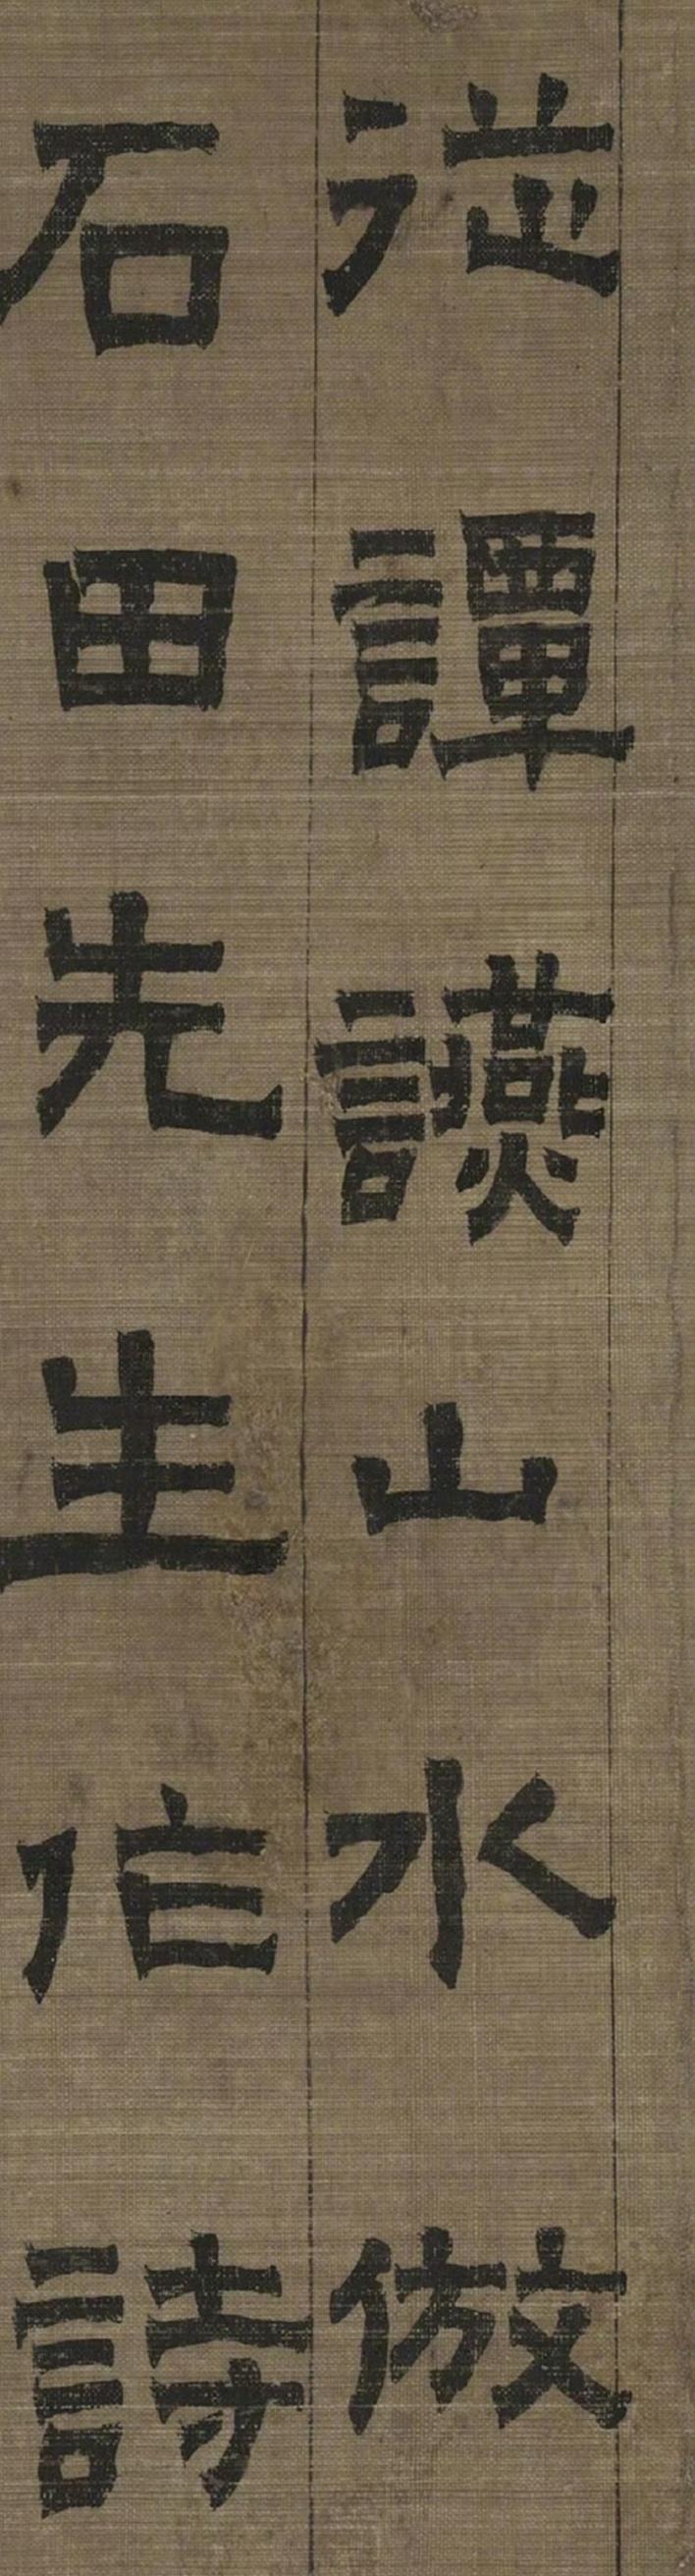 從譚讌山水倣
石田先生作詩